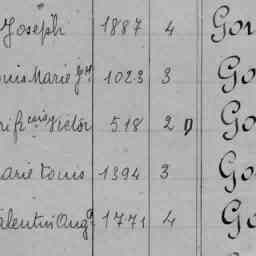 Joseph 1887 4 Gon
ouis Marie Jh 1023 3 Go
Victor 518 2 D Go
arie Louis 1394 3 Go
alentin Aug 1771 4 Go